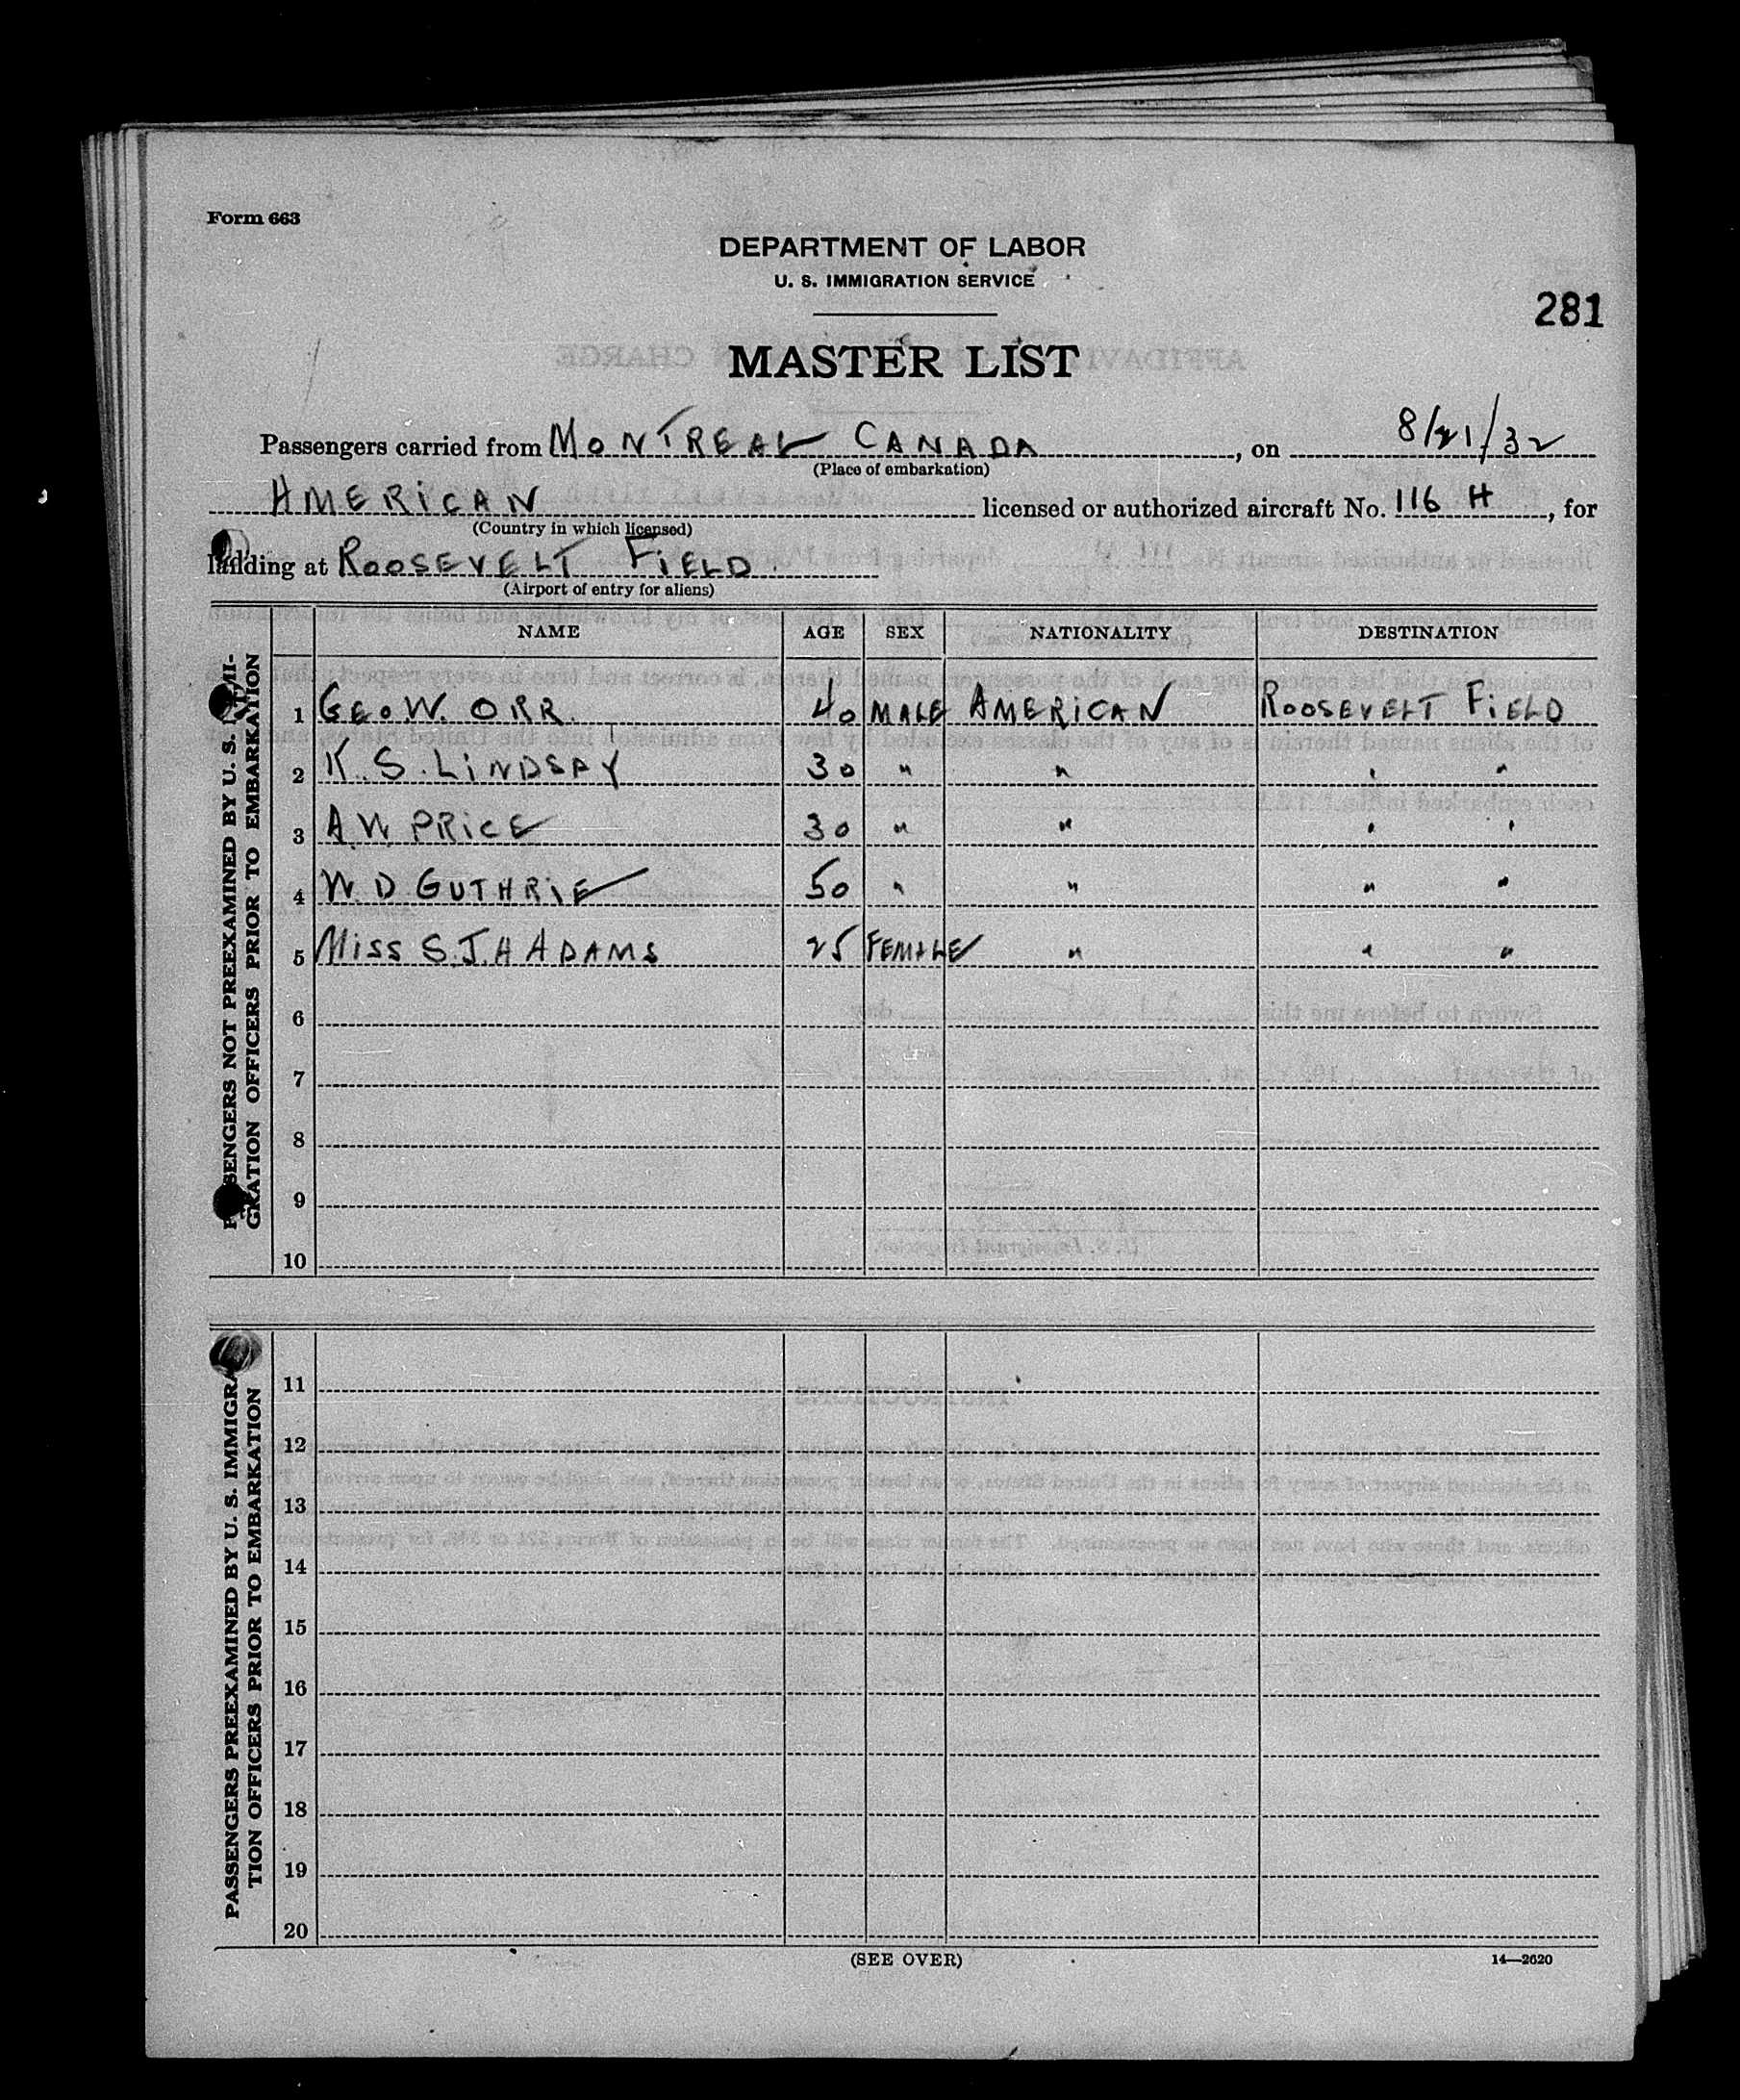 Form 663
DEPARTMENT OF LABOR
U. S. IMMIGRATION SERVICE
281
MASTER LIST
Passengers carried from MONTREAL CANADA, on 8/21/32
(Place of embarkation)
AMERICAN licensed or authorized aircraft No. 116 H, for
(Country in which licensed)
landing at ROOSEVELT FIELD.
(Airport of entry for aliens)
NAME AGE SEX NATIONALITY DESTINATION
PASSENGERS NOT PREEXAMINED BY U. S. IMMI-
GRATION OFFICERS PRIOR TO EMBARKATION
1 GEO W. ORR. 40 MALE AMERICAN ROOSEVELT FIELD
2 K. S. LINDSAY 30 " " " "
3 A. W. PRICE 30 " " " "
4 W. D GUTHRIE 50 " " " "
5 MISS S. J. H ADAMS 25 FEMALE " " "
6
7
8
9
10
PASSENGERS PREEXAMINED BY U. S. IMMIGRA-
TION OFFICERS PRIOR TO EMBARKATION
11
12
13
14
15
16
17
18
19
20
(SEE OVER)
14—2620